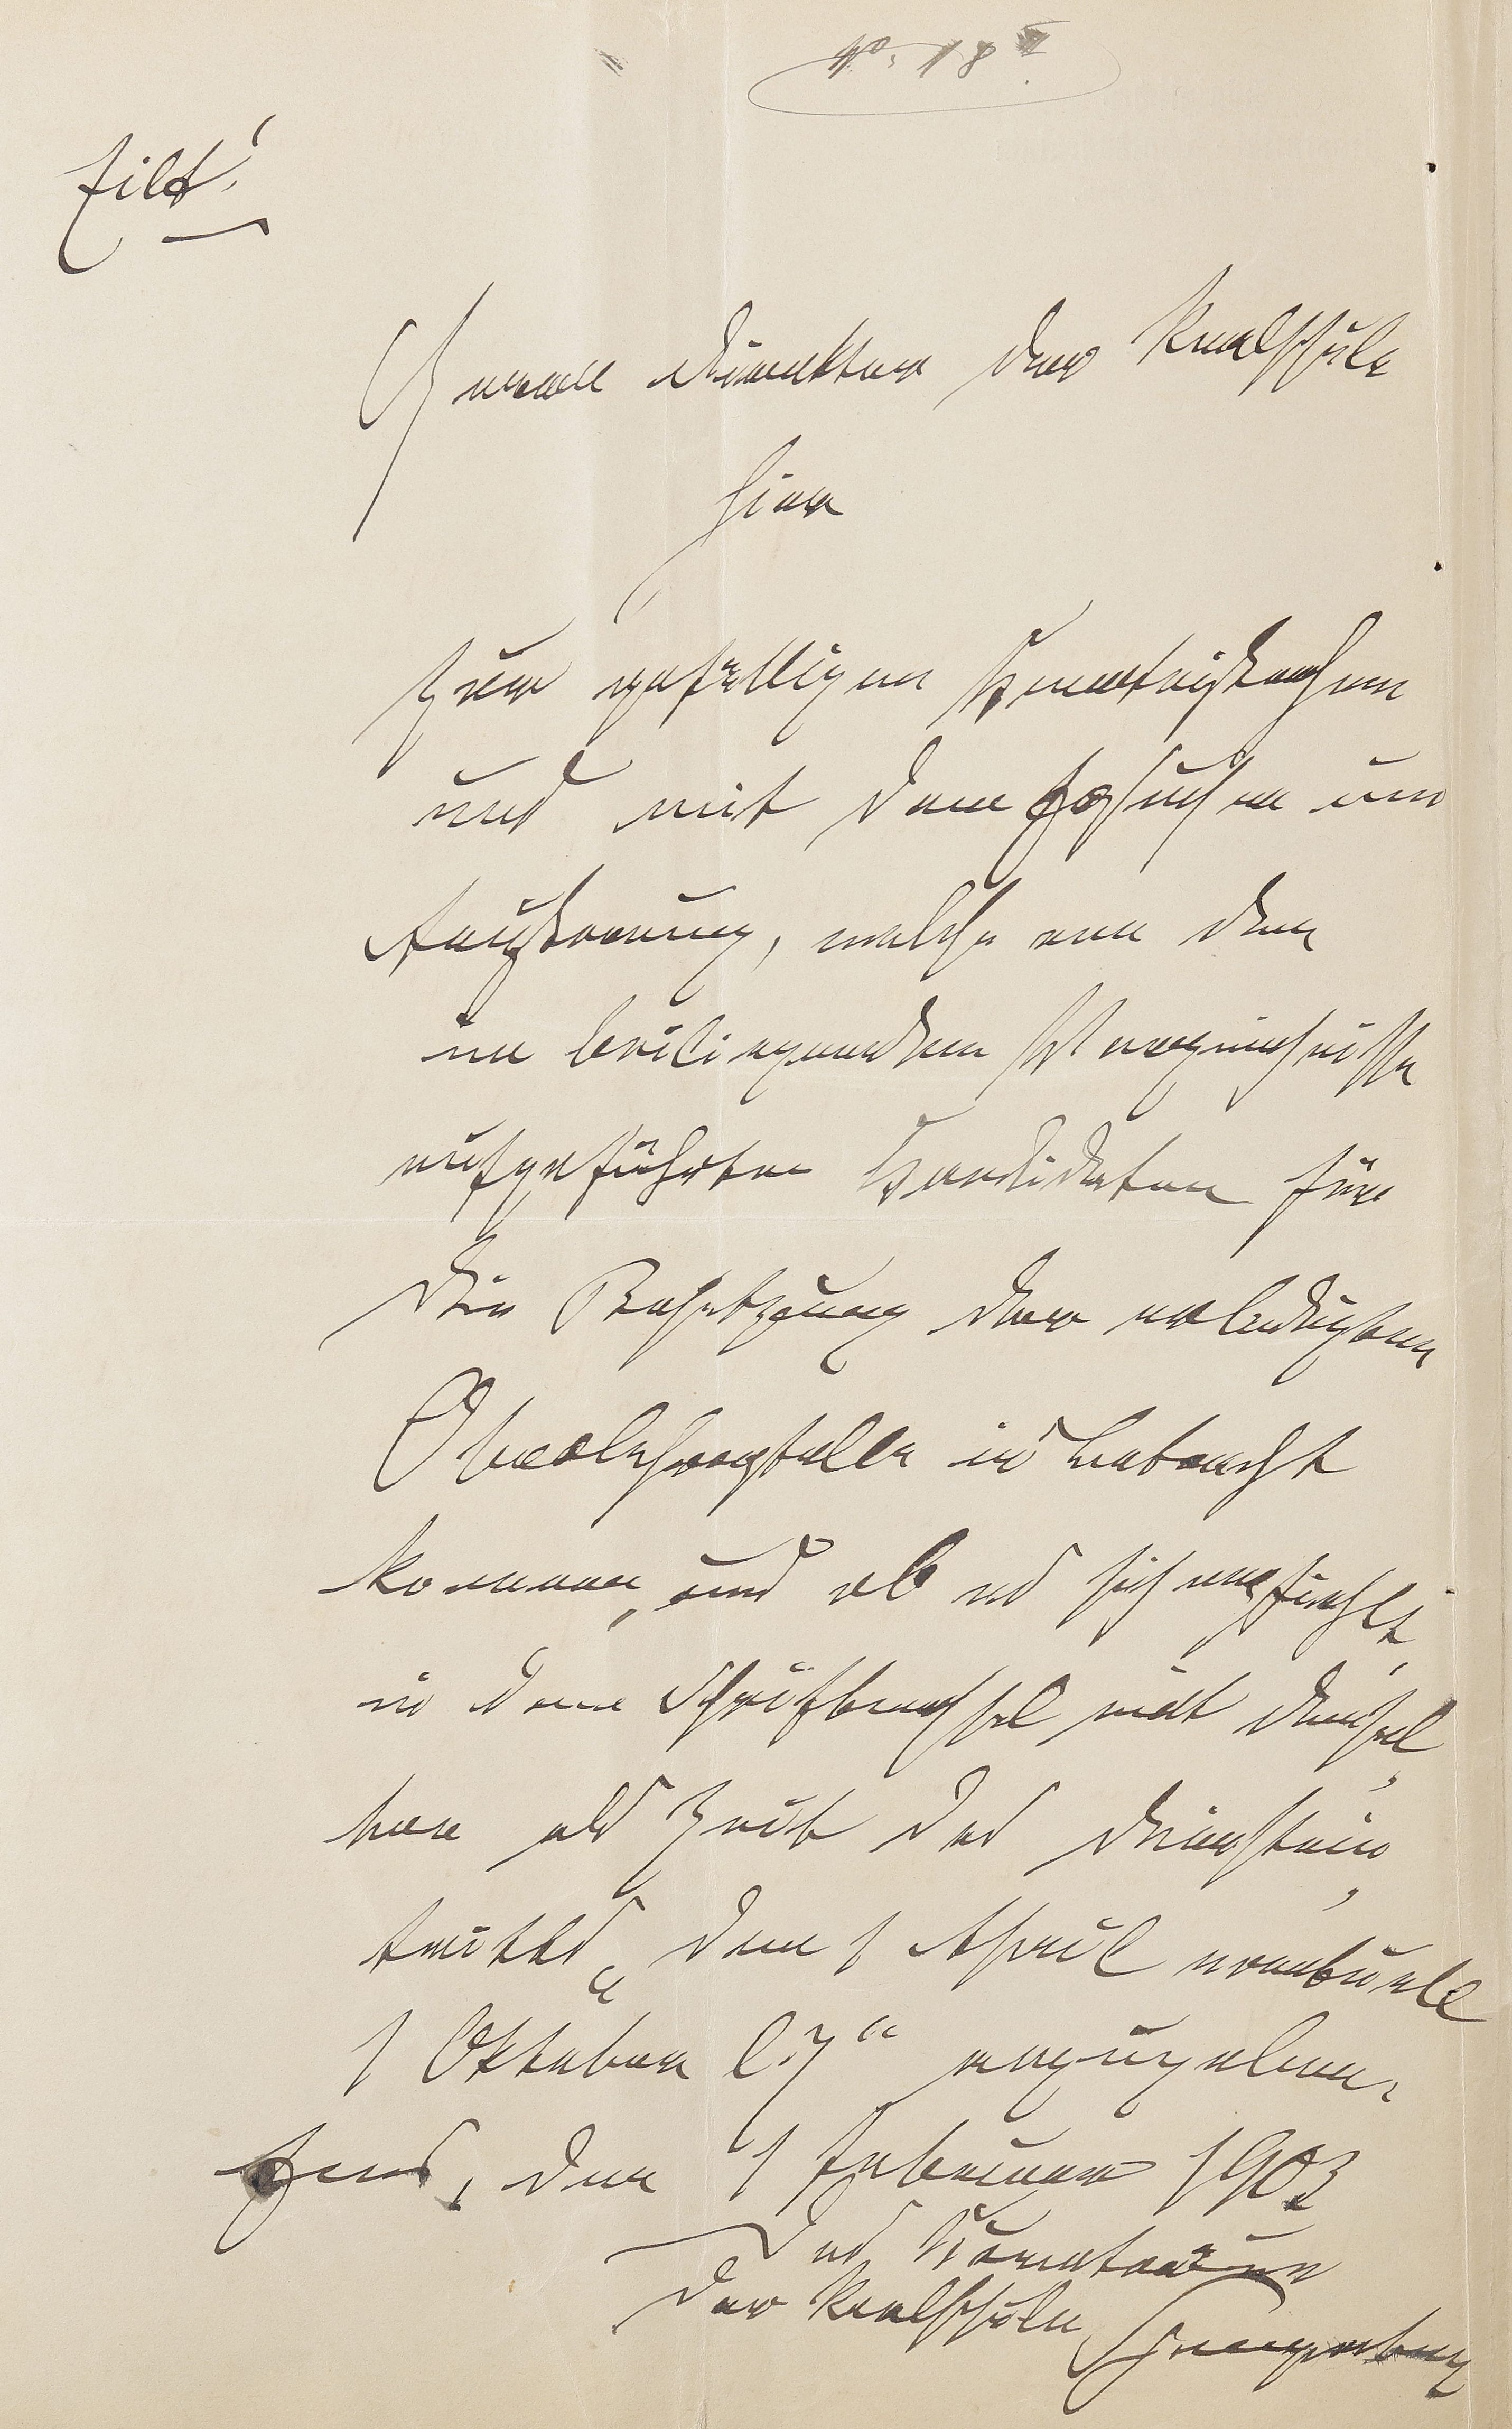 No. 18 I
Eilt!
Herrn Direktor der Realschule
hier
Zur gefälligen Kenntnißnahme
und mit dem Ersuchen um
Äußerung, welche von den
im beiliegenden Verzeichnisse
aufgeführten Kandidaten für
die Besetzung der erledigten
Oberlehrerstelle in Betracht
kommen, und ob es sich empfiehlt,
in dem Schriftwechsel mit densel
ben als Zeit des Dienstein
tritts „den 1 April eventuell
1 Oktober l. J“ anzugeben.
den 1 Februar 1903
Das Kuratorium
der Realschule